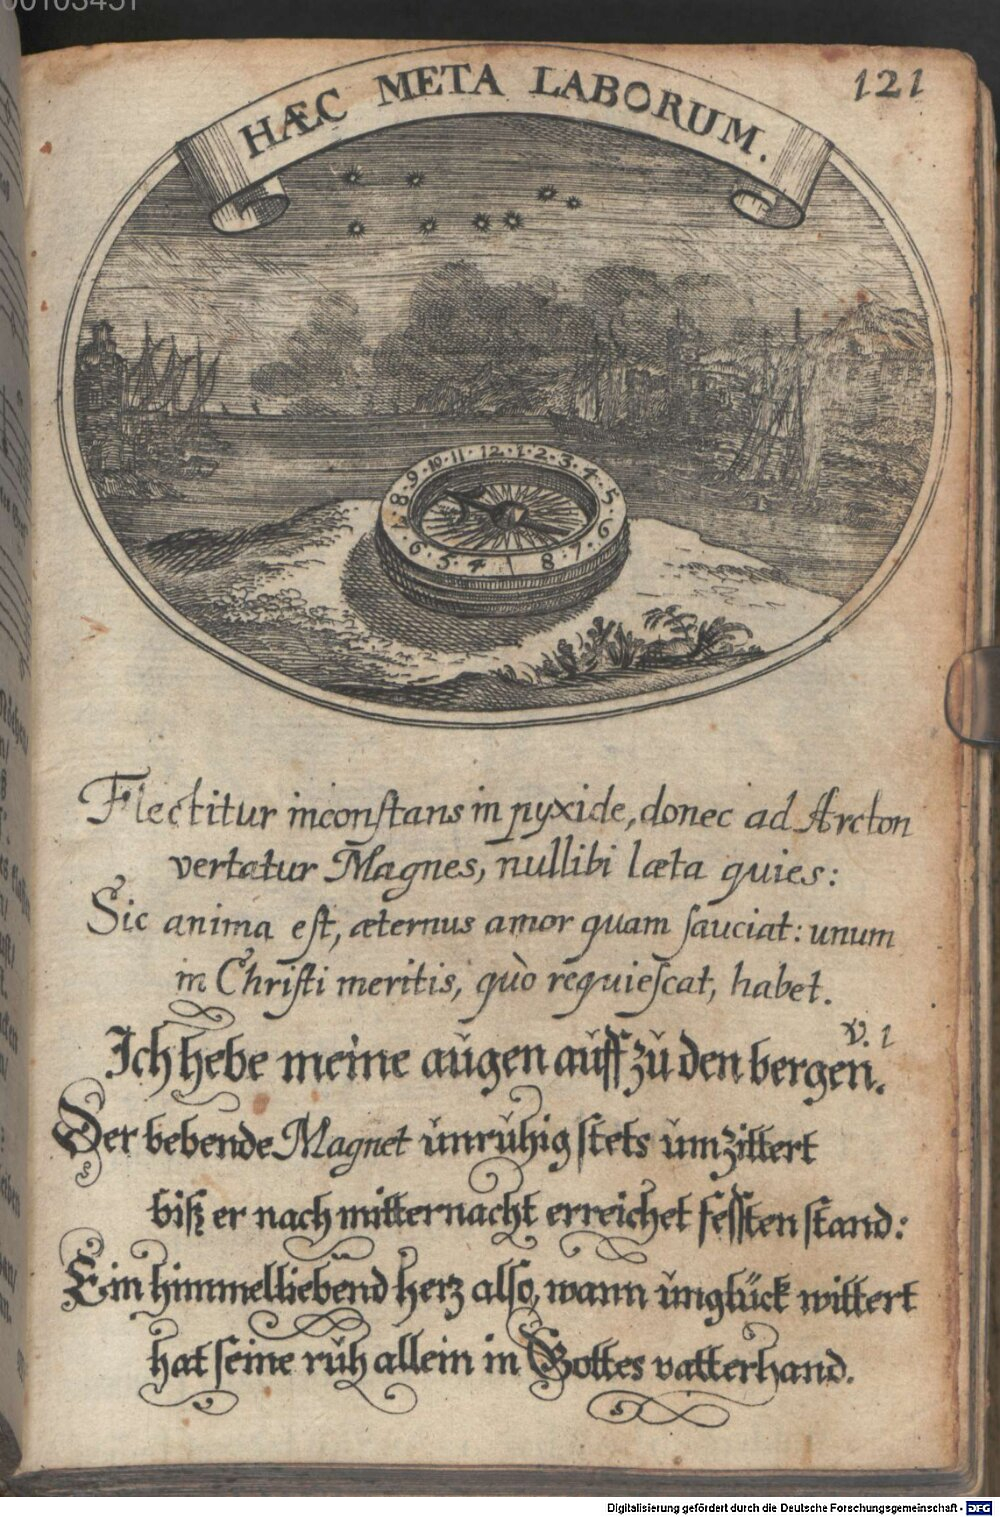 121
HÆC META LABORUM.
12 · 1 · 2 · 3 · 4 · 5 · 6 · 7 · 8
4 · 5 · 6 · 8 · 9 · 10 · 11
Flectitur inconſtans in pyxide, donec ad Arcton
vertatur Magnes, nullibi læta quies:
Sic anima eſt, æternus amor quam ſauciat: unum
in Chriſti meritis, quò requieſcat, habet.
v. 1
Ich hebe meine aŭgen aŭff zŭ den bergen.
Der bebende Magnet ŭnrŭhig ſtets ŭmzittert
biß er nach mitternacht erreichet feſſten ſtand:
Ein himmelliebend herz alſo, wann ŭnglück wittert
hat ſeine rŭh allein in Gottes vatterhand.
Digitalisierung gefördert durch die Deutsche Forschungsgemeinschaft - DFG